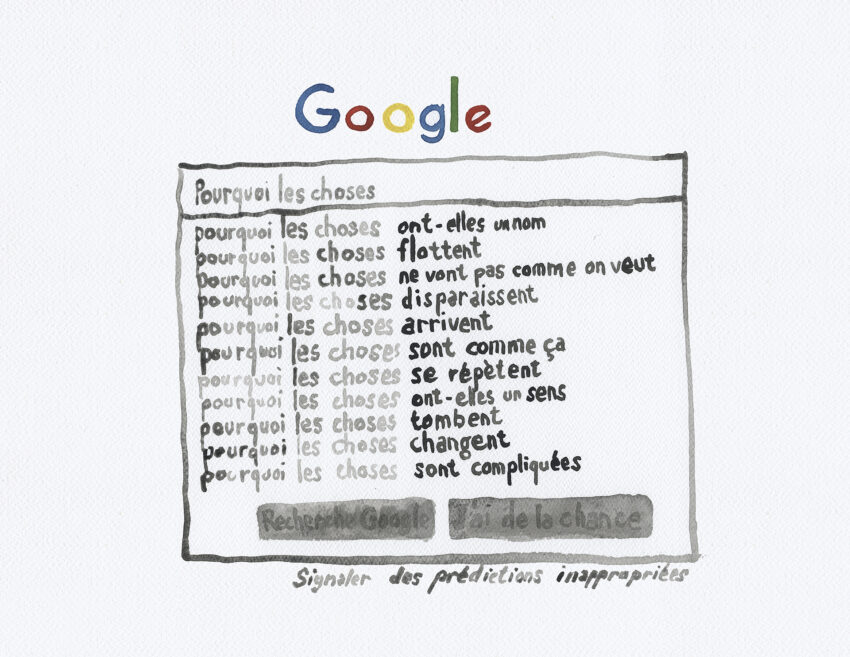 Google
Pourquoi les choses
pourquoi les choses ont-elles un nom
pourquoi les choses flottent
pourquoi les choses ne vont pas comme on veut
pourquoi les choses disparaissent
pourquoi les choses arrivent
pourquoi les choses sont comme ça
pourquoi les choses se répètent
pourquoi les choses ont-elles un sens
pourquoi les choses tombent
pourquoi les choses changent
pourquoi les choses sont compliquées
Recherche Google J'ai de la chance
Signaler des prédictions inappropriées